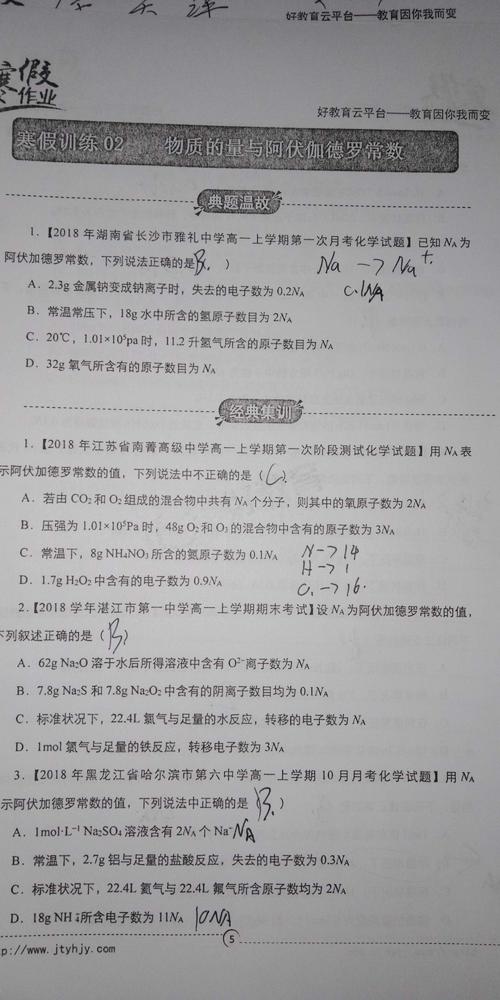 好教育云平台——教育因你我而变
寒假
作业
好教育云平台——教育因你我而变
寒假训练 02 物质的量与阿伏伽德罗常数
典题温故
1.【2018 年湖南省长沙市雅礼中学高一上学期第一次月考化学试题】已知 NA 为
阿伏加德罗常数，下列说法正确的是（B.）
Na -> Na+.
A．2.3g 金属钠变成钠离子时，失去的电子数为 0.2NA
0.1NA
B．常温常压下，18g 水中所含的氢原子数目为 2NA
C．20℃，1.01×10⁵pa 时，11.2 升氢气所含的原子数目为 NA
D．32g 氧气所含有的原子数目为 NA
经典集训
1.【2018 年江苏省南菁高级中学高一上学期第一次阶段测试化学试题】用 NA 表
示阿伏加德罗常数的值，下列说法中不正确的是（C）.
A．若由 CO₂ 和 O₂ 组成的混合物中共有 NA 个分子，则其中的氧原子数为 2NA
B．压强为 1.01×10⁵Pa 时，48g O₂ 和 O₃ 的混合物中含有的原子数为 3NA
C．常温下，8g NH₄NO₃ 所含的氮原子数为 0.1NA
N -> 14
H -> 1
D．1.7g H₂O₂ 中含有的电子数为 0.9NA
O -> 16.
2.【2018 学年湛江市第一中学高一上学期期末考试】设 NA 为阿伏加德罗常数的值，
下列叙述正确的是（B）
A．62g Na₂O 溶于水后所得溶液中含有 O²⁻离子数为 NA
B．7.8g Na₂S 和 7.8g Na₂O₂ 中含有的阴离子数目均为 0.1NA
C．标准状况下，22.4L 氯气与足量的水反应，转移的电子数为 NA
D．1mol 氯气与足量的铁反应，转移电子数为 3NA
3.【2018 年黑龙江省哈尔滨市第六中学高一上学期 10 月月考化学试题】用 NA
示阿伏加德罗常数的值，下列说法中正确的是（B.）
A．1mol·L⁻¹ Na₂SO₄ 溶液含有 2NA 个 Na⁺ NA
B．常温下，2.7g 铝与足量的盐酸反应，失去的电子数为 0.3NA
C．标准状况下，22.4L 氦气与 22.4L 氟气所含原子数均为 2NA
D．18g NH₄⁺所含电子数为 11NA 10NA
5
p://www.jtyhjy.com